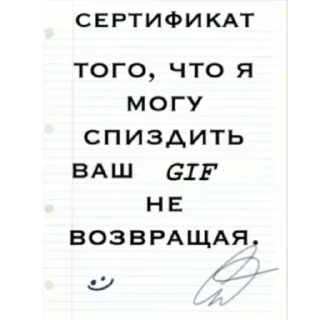 СЕРТИФИКАТ
ТОГО, ЧТО Я
МОГУ
СПИЗДИТЬ
ВАШ GIF
НЕ
ВОЗВРАЩАЯ.